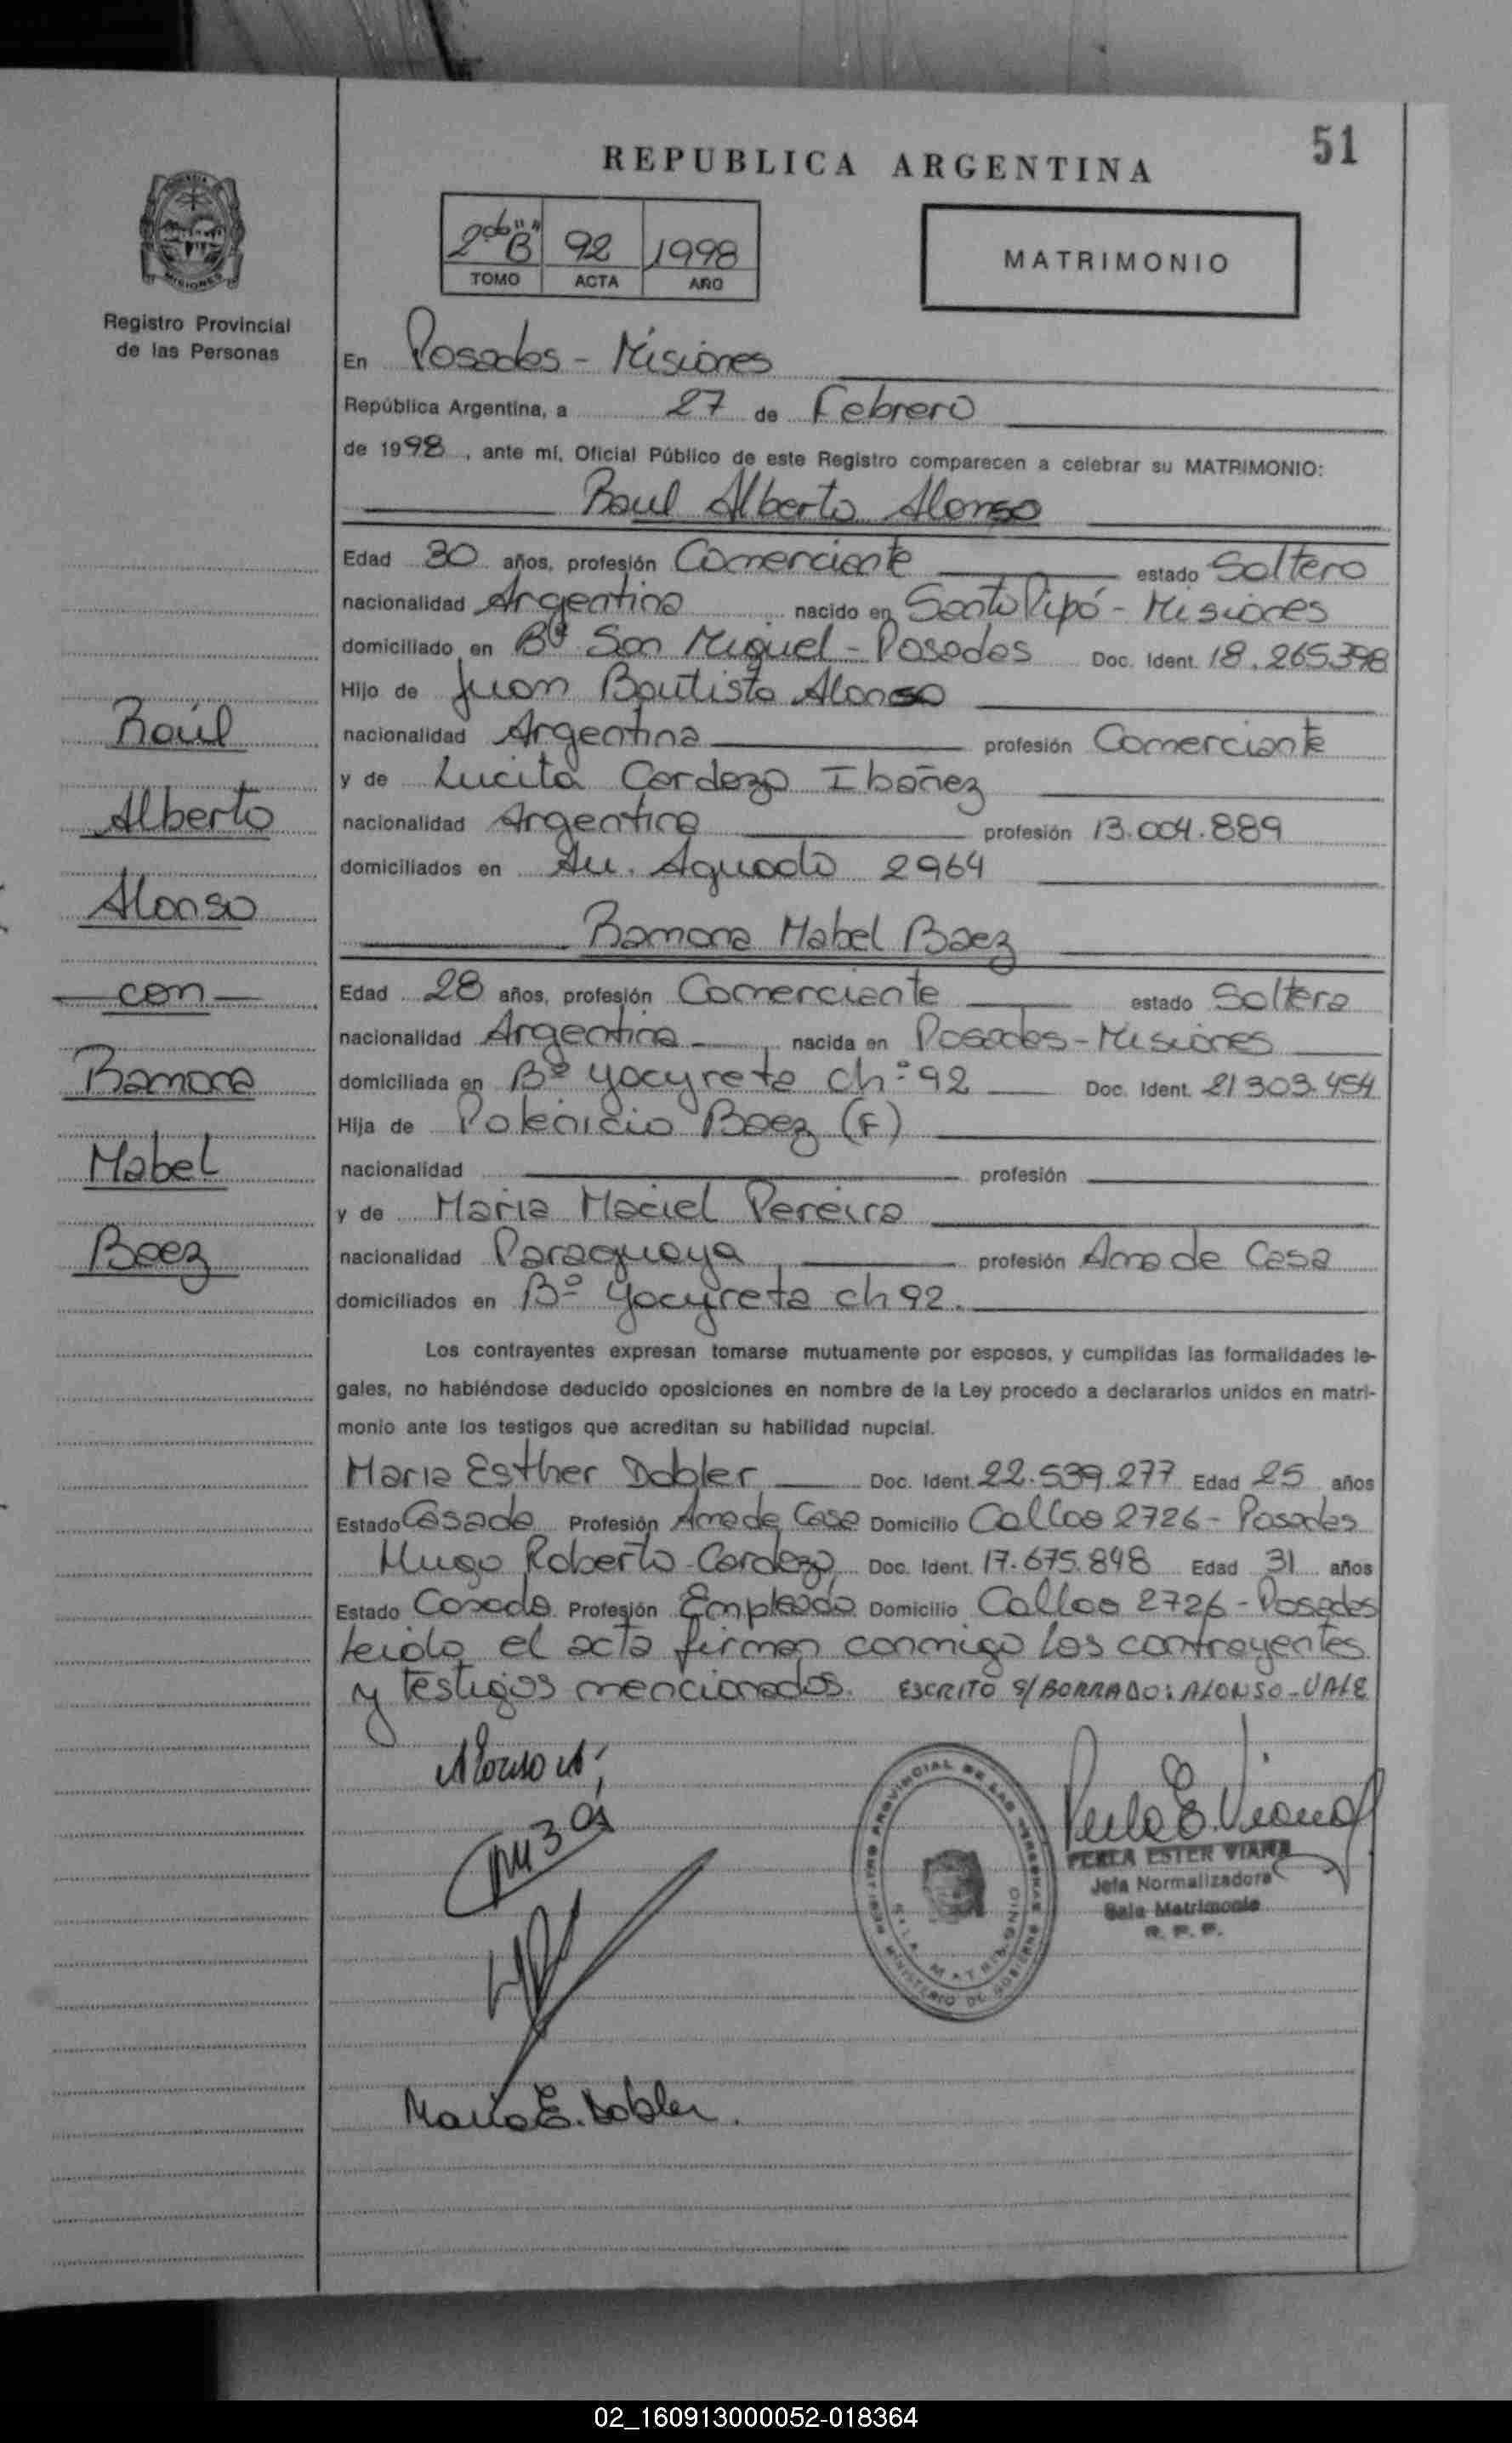 51
REPUBLICA ARGENTINA
2do "B" 92 1998
TOMO ACTA AÑO
MATRIMONIO
MISIONES
Registro Provincial
de las Personas
En Posadas - Misiones
República Argentina, a 27 de Febrero
de 1998, ante mí, Oficial Público de este Registro comparecen a celebrar su MATRIMONIO:
Raul Alberto Alonso
Edad 30 años, profesión Comerciante estado Soltero
nacionalidad Argentina nacido en Santo Pipó - Misiones
domiciliado en Bº San Miguel - Posadas Doc. Ident. 18.265.398
Hijo de Juan Bautista Alonso
nacionalidad Argentina profesión Comerciante
y de Lucita Cardozo Ibañez
nacionalidad Argentina profesión 13.004.889
domiciliados en Av. Aguado 2964
Ramona Mabel Baez
Edad 28 años, profesión Comerciante estado Soltera
nacionalidad Argentina nacida en Posadas - Misiones
domiciliada en Bº Yacyreta ch: 92 Doc. Ident. 21303.454
Hija de Baez (F)
nacionalidad profesión
y de Maria Maciel Pereira
nacionalidad Paraguaya profesión Ama de Casa
domiciliados en Bº Yacyreta ch 92.
Raúl
Alberto
Alonso
con
Ramona
Mabel
Baez
Los contrayentes expresan tomarse mutuamente por esposos, y cumplidas las formalidades le-
gales, no habiéndose deducido oposiciones en nombre de la Ley procedo a declararlos unidos en matri-
monio ante los testigos que acreditan su habilidad nupcial.
Maria Esther Dobler Doc. Ident. 22.539.277 Edad 25 años
Estado Casada Profesión Ama de Casa Domicilio Callao 2726 - Posadas
Hugo Roberto Cardozo Doc. Ident. 17.675.848 Edad 31 años
Estado Casado Profesión Empleado Domicilio Callao 2726 - Posadas
leida el acta firman conmigo los contrayentes
y testigos mencionados. ESCRITO S/BORRADO: ALONSO - VALE
Alonso A
Perla E. Viana
PERLA ESTER VIANA
Jefa Normalizadora
Sala Matrimonio
R. P. P.
REGISTRO PROVINCIAL DE LAS PERSONAS
SALA MATRIMONIO
MINISTERIO DE GOBIERNO
Maria E. Dobler.
02_160913000052-018364